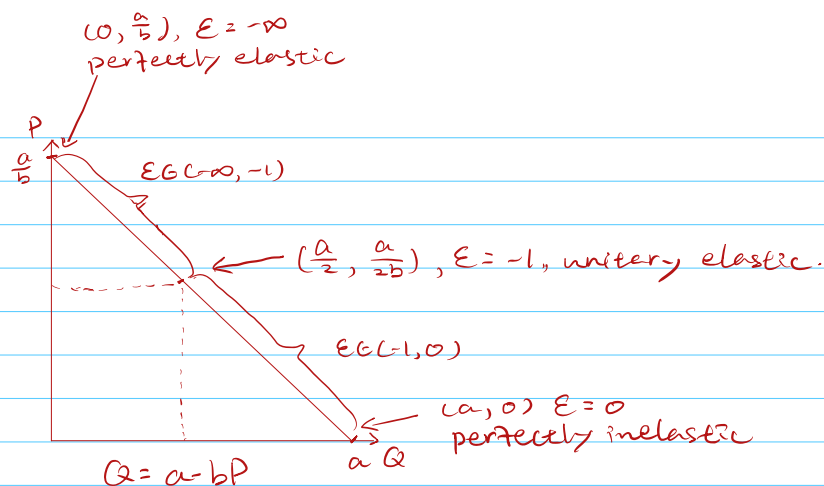 (0, a/b), ε = -∞
perfectly elastic
P
a/b
ε∈(-∞, -1)
(a/2, a/2b), ε = -1, unitery elastic.
ε∈(-1, 0)
(a, 0) ε = 0
perfectly inelastic
a Q
Q = a - bP